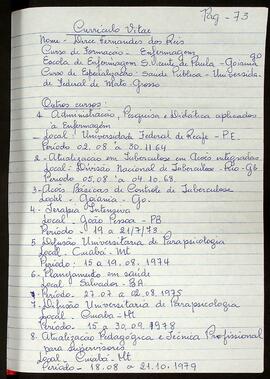 Pag - 73
Currículo Vitae
Nome - Dirce Fernandes dos Reis
Curso de Formação - Enfermagem
Escola de Enfermagem S. Vicente de Paula - Goiania GO
Curso de Especialização: Saúde Pública - Universida-
de Federal de Mato-Grosso
Outros cursos:
1. Administração, Pesquisa e Didática aplicados
à Enfermagem
Local: Universidade Federal de Recife - PE
Período 02.08 a 30.11.64
2 - Atualização em Tuberculose em Ações integradas
Local: Divisão Nacional de Tuberculose - Rio - Gb
Período 05.08 a 04.10.68
3 - Ações Básicas de Controle de Tuberculose
Local - Goiânia - Go.
4 - Terapia Intensiva
Local - João Pessoa - PB
Período - 19 a 21/7/73
5 Difusão Universitaria de Parapsicologia
Local - Cuiabá - Mt
Período: 15 a 19.08.1974
6 - Planejamento em saúde
Local - Salvador - BA
Período - 27.07 a 02.08.1975
7 - Difusão Universitaria de Parapsicologia
Local - Cuiabá - Mt
Período - 15 a 30.09.1978
8. Atualização Pedagógica e Técnica Profissional
para supervisores
Local - Cuiabá - Mt
Período - 18.08 a 21.10.1979